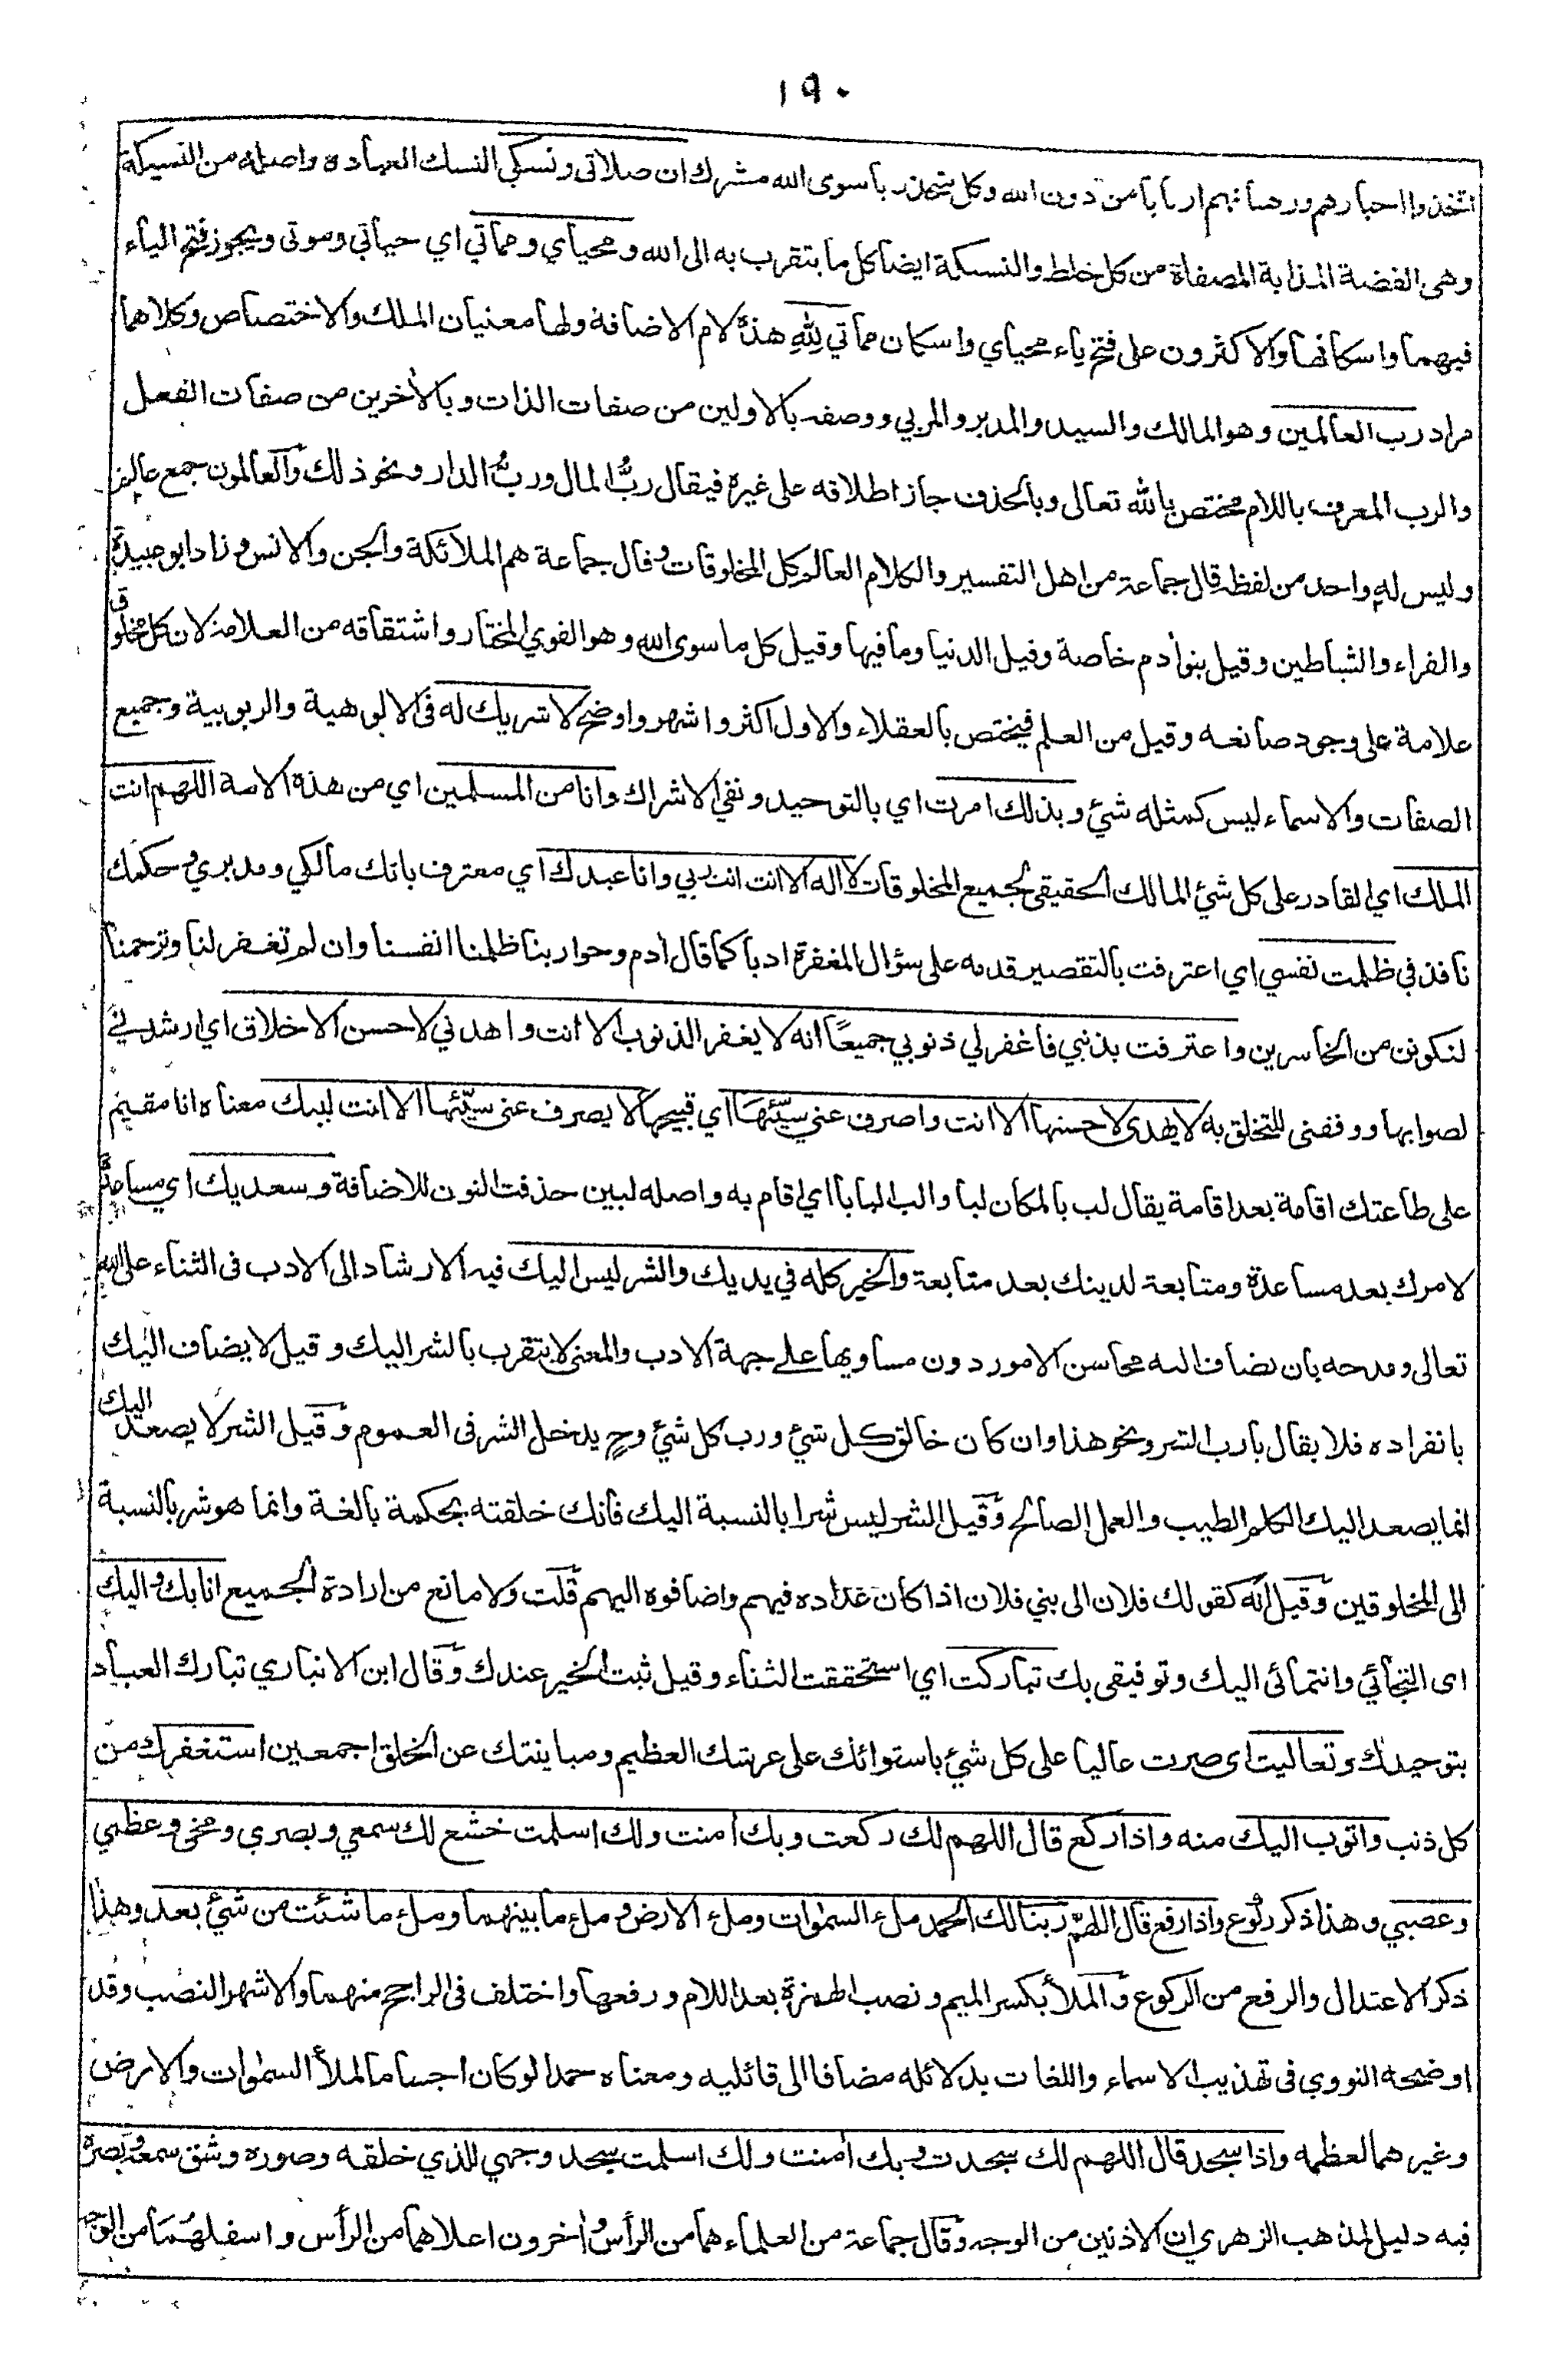 ١٩٠
اتخذوا احبارهم ورهبانهم اربابا من دون الله وكل متخذ ربا سوى الله مشرك ان صلاتي ونسكي النسك العبادة واصله من النسيكة
وهي الفضة المذابة المصفاة من كل خلط والنسكة ايضا كل ما يتقرب به الى الله ومحياي ومماتي اي حياتي وموتى ويجوز فتح الياء
فيهما واسكانها والاكثرون على فتح ياء محياي واسكان مماتي لله هذه لام الاضافة ولها معنيان الملك والاختصاص وكلاهما
مراد رب العالمين وهو المالك والسيد والمدبر والمربي ووصفه بالاولين من صفات الذات وبالأخرين من صفات الفعل
والرب المعرف باللام مختص بالله تعالى وبالحذف جاز اطلاقه على غيره فيقال ربُّ المال وربُّ الدار ونحو ذلك والعالمون جمع عالم
وليس له واحد من لفظه قال جماعة من اهل التفسير والكلام العالم كل المخلوقات وقال جماعة هم الملائكة والجن والانس وزاد ابو عبيدة
والفراء والشياطين وقيل بنو أدم خاصة وقيل الدنيا وما فيها وقيل كل ما سوى الله وهو القوي المختار واشتقاقه من العلامة لان كل مخلوق
علامة على وجود صانعه وقيل من العلم فيختص بالعقلاء والاول اكثر واشهر واوضح لا شريك له فى الالوهية والربوبية وجميع
الصفات والاسماء ليس كمثله شئ وبذلك امرت اي بالتوحيد ونفي الاشراك وانا من المسلمين اي من هذه الامة اللهم انت
الملك اي القادر على كل شئ المالك الحقيقى لجميع المخلوقات لا اله الا انت انت ربي وانا عبدك اي معترف بانك مالكي ومدبري وحكمك
نافذ في ظلمت نفسي اي اعترفت بالتقصير قدمه على سؤال المغفرة ادبا كما قال أدم وحوا ربنا ظلمنا انفسنا وان لم تغفر لنا وترحمنا
لنكونن من الخاسرين واعترفت بذنبي فاغفر لي ذنوبي جميعًا انه لا يغفر الذنوب الا انت واهدني لاحسن الاخلاق اي ارشدني
لصوابها ووفقنى للتخلق به لا يهدى لاحسنها الا انت واصرف عني سيّئهَا اي قبيحها لا يصرف عنى سيّئها الا انت لبيك معناه انا مقيم
على طاعتك اقامة بعد اقامة يقال لب بالمكان لبا والب البابا اي اقام به واصله لبين حذفت النون للاضافة وسعديك اي مساعدة
لامرك بعد مساعدة ومتابعة لدينك بعد متابعة والخير كله في يديك والشر ليس اليك فيه الارشاد الى الادب فى الثناء على الله
تعالى ومدحه بان يضاف اليه محاسن الامور دون مساويها على جهة الادب والمعنى لا يتقرب بالشر اليك وقيل لا يضاف اليك
بانفراده فلا يقال يا رب الشر ونحو هذا وان كان خالق كل شئ ورب كل شئ وح يدخل الشر فى العموم وقيل الشر لا يصعد اليك
انما يصعد اليك الكلم الطيب والعمل الصالح وقيل الشر ليس شرا بالنسبة اليك فانك خلقته بحكمة بالغة وانما هو شر بالنسبة
الى المخلوقين وقيل انه كقولك فلان الى بني فلان اذا كان عداده فيهم واضافوه اليهم قلت ولا مانع من ارادة الجميع انا بك واليك
اى التجائي وانتمائى اليك وتوفيقى بك تباركت اي استحققت الثناء وقيل ثبت الخير عندك وقال ابن الانباري تبارك العباد
بتوحيدك وتعاليت اى صرت عاليا على كل شئ باستوائك على عرشك العظيم ومباينتك عن الخلق اجمعين استغفرك من
كل ذنب واتوب اليك منه واذا ركع قال اللهم لك ركعت وبك أمنت ولك اسلمت خشع لك سمعي وبصري ومخى وعظمي
وعصبي وهذا ذكر ركوع واذا رفع قال اللهمّ ربنا لك الحمد ملء السموات وملء الارض وملء ما بينهما وملء ما شئت من شئ بعد وهذا
ذكر الاعتدال والرفع من الركوع والملأ بكسر الميم ونصب الهمزة بعد اللام ورفعها واختلف فى الراجح منهما والاشهر النصب وقد
اوضحه النووي فى تهذيب الاسماء واللغات بدلائله مضافا الى قائليه ومعناه حمدا لو كان اجساما لملأ السموات والارض
وغيرهما لعظمه واذا سجد قال اللهم لك سجدت وبك أمنت ولك اسلمت سجد وجهي للذي خلقه وصوره وشق سمعه وبصره
فيه دليل لمذهب الزهري ان الاذنين من الوجه وقال جماعة من العلماء هما من الرأس وأخرون اعلاهما من الرأس واسفلهما من الوجه